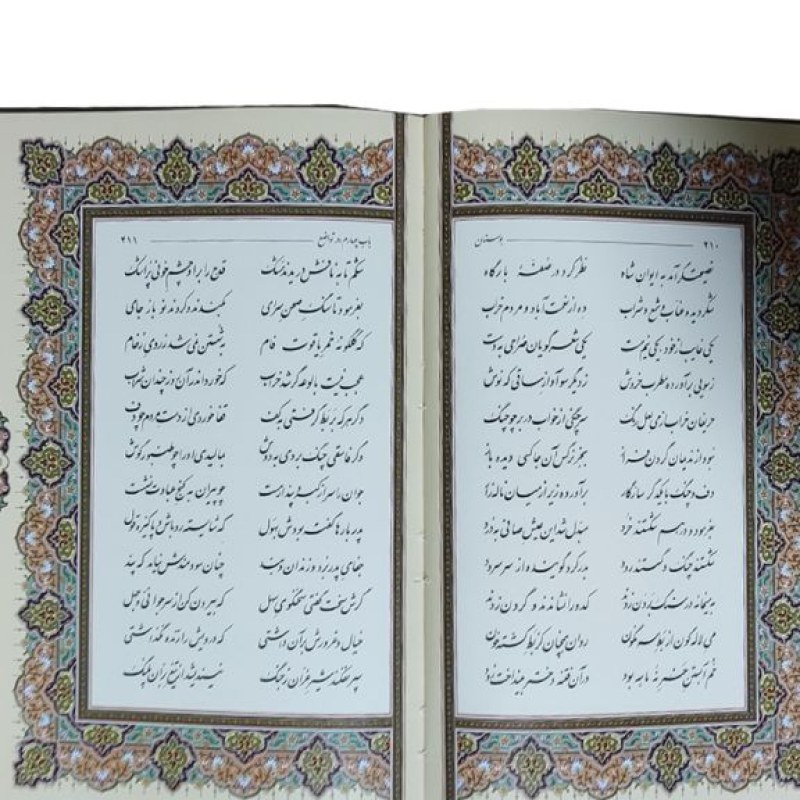 ۲۱۰ بوستان
نصیحتگر آمد به ایوان شاه نظر کرد در صفهٔ بارگاه
شکر دید و عناب و شمع و شراب ده از نعمت آباد و مردم خراب
یکی غایب از خود، یکی نیم مست یکی شعر گویان صراحی به دست
ز سویی برآورده مطرب خروش ز دیگر سو آواز ساقی که نوش
حریفان خراب از می لعل رنگ سر چنگی از خواب در بر چو چنگ
نبود از ندیمان گردن فراز بجز نرگس آن جا کسی دیده باز
دف و چنگ با یکدگر سازگار برآورده زیر از میان ناله زار
بفرمود و درهم شکستند خرد مبدل شد آن عیش صافی به درد
شکستند چنگ و گسستند رود بدر کرد گوینده از سر سرود
به میخانه در سنگ بر دن زدند کدو را نشاندند و گردن زدند
می لاله گون از بط سرنگون روان همچنان کز بط کشته خون
خم آبستن خمر نه ماهه بود در آن فتنه دختر بینداخت زود
باب چهارم در تواضع ۲۱۱
شکم تا به نافش دریدند مشک قدح را بر او چشم خونی پر اشک
بفرمود تا سنگ صحن سرای بکندند و کردند نو باز جای
که گلگونه خمر یاقوت فام به شستن نمی شد ز روی رخام
عجب نیست بالوعه گر شد خراب که خورد اندر آن چندان شراب
دگر هر که بربط گرفتی به کف قفا خوردی از دست مردم چو دف
وگر فاسقی چنگ بردی به دوش بمالیدی او را چو طنبور گوش
جوان را سر از کبر و پندار مست چو پیران به کنج عبادت نشست
پدر بارها گفته بودش به هول که شایسته رو باش و پاکیزه قول
جفای پدر برد و زندان و بند چنان سودمندش نیامد که پند
گرش سخت گفتی سخنگوی سهل که بیرون کن از سر جوانی و جهل
خیال و غرورش بر آن داشتی که درویش را زنده نگذاشتی
سپر نفکند شیر غران ز جنگ نیندیشد از تیغ بران پلنگ